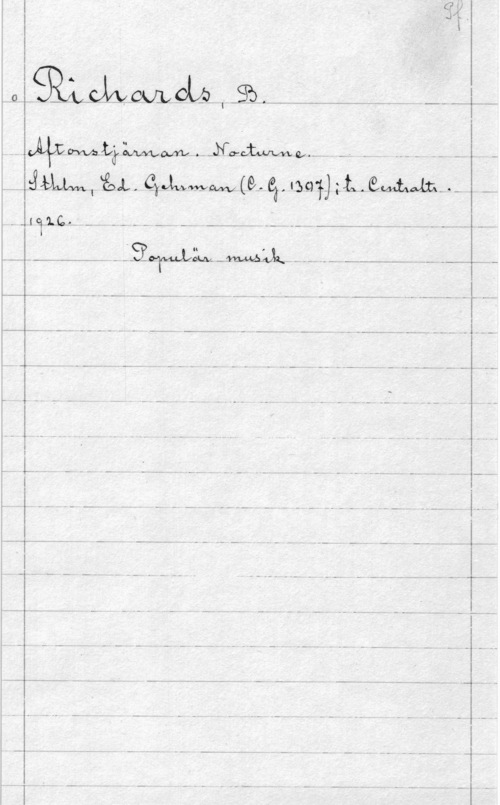 Pf
o Richards, B.
Aftonstjärnan. Nocturne.
Sthlm, Ed. Gehrman (C. G. 1307); tr. Centraltr.
1926.
Populär musik